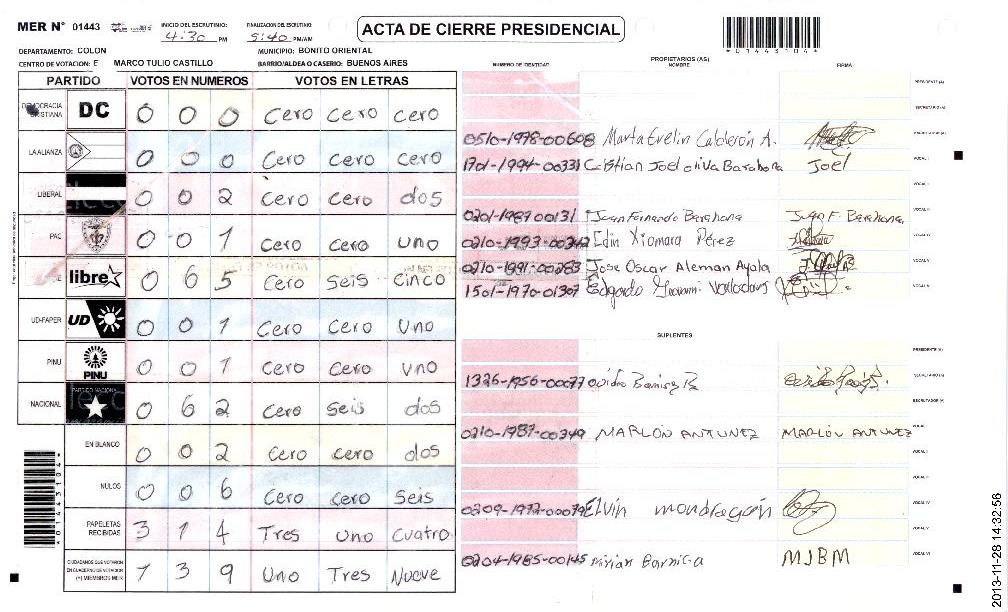 MER N° 01443 INICIO DEL ESCRUTINIO: 4:30 PM FINALIZACION DEL ESCRUTINIO: 5:40 PM/AM
ACTA DE CIERRE PRESIDENCIAL
*01443104*
DEPARTAMENTO: COLON MUNICIPIO: BONITO ORIENTAL
CENTRO DE VOTACION: E MARCO TULIO CASTILLO BARRIO/ALDEA O CASERIO: BUENOS AIRES
PARTIDO VOTOS EN NUMEROS VOTOS EN LETRAS
DEMOCRACIA CRISTIANA DC 0 0 0 Cero Cero cero
LA ALIANZA 0 0 0 Cero Cero cero
LIBERAL 0 0 2 Cero Cero dos
PAC 0 0 1 Cero Cero uno
libre 0 6 5 Cero Seis Cinco
UD-FAPER UD 0 0 1 Cero Cero uno
PINU PINU 0 0 1 Cero Cero uno
NACIONAL 0 6 2 Cero Seis dos
EN BLANCO 0 0 2 Cero Cero dos
NULOS 0 0 6 Cero Cero Seis
PAPELETAS RECIBIDAS 3 1 4 Tres uno Cuatro
CIUDADANOS QUE VOTARON EN CUADERNO DE VOTACION (+) MIEMBROS MER 1 3 9 Uno Tres Nueve
*01443104*
PROPIETARIOS (AS)
NUMERO DE IDENTIDAD NOMBRE FIRMA
PRESIDENTE (A)
SECRETARIO (A)
0510-1978-00608 Marta Evelin Calderón A. ESCRUTADOR (A)
1701-1994-00331 Cristian Joel oliva Barahona Joel VOCAL I
VOCAL II
0201-1987 00131 Juan Fernando Barahona Juan F. Barahona VOCAL III
0210-1993-00342 Edin Xiomara Pérez VOCAL IV
0210-1991-00283 Jose Oscar Aleman Ayala VOCAL V
1501-1970-01307 Edgardo VOCAL VI
SUPLENTES
PRESIDENTE (A)
1326-1956-00077 SECRETARIO (A)
ESCRUTADOR (A)
0210-1987-00349 MARLON ANTUNEZ MARLON ANTUNEZ VOCAL I
VOCAL II
VOCAL III
0209-1972-00079 Elvin mondragón VOCAL IV
VOCAL V
0204-1985-00145 mirian Barnica MJBM VOCAL VI
2013-11-28 14:32:56